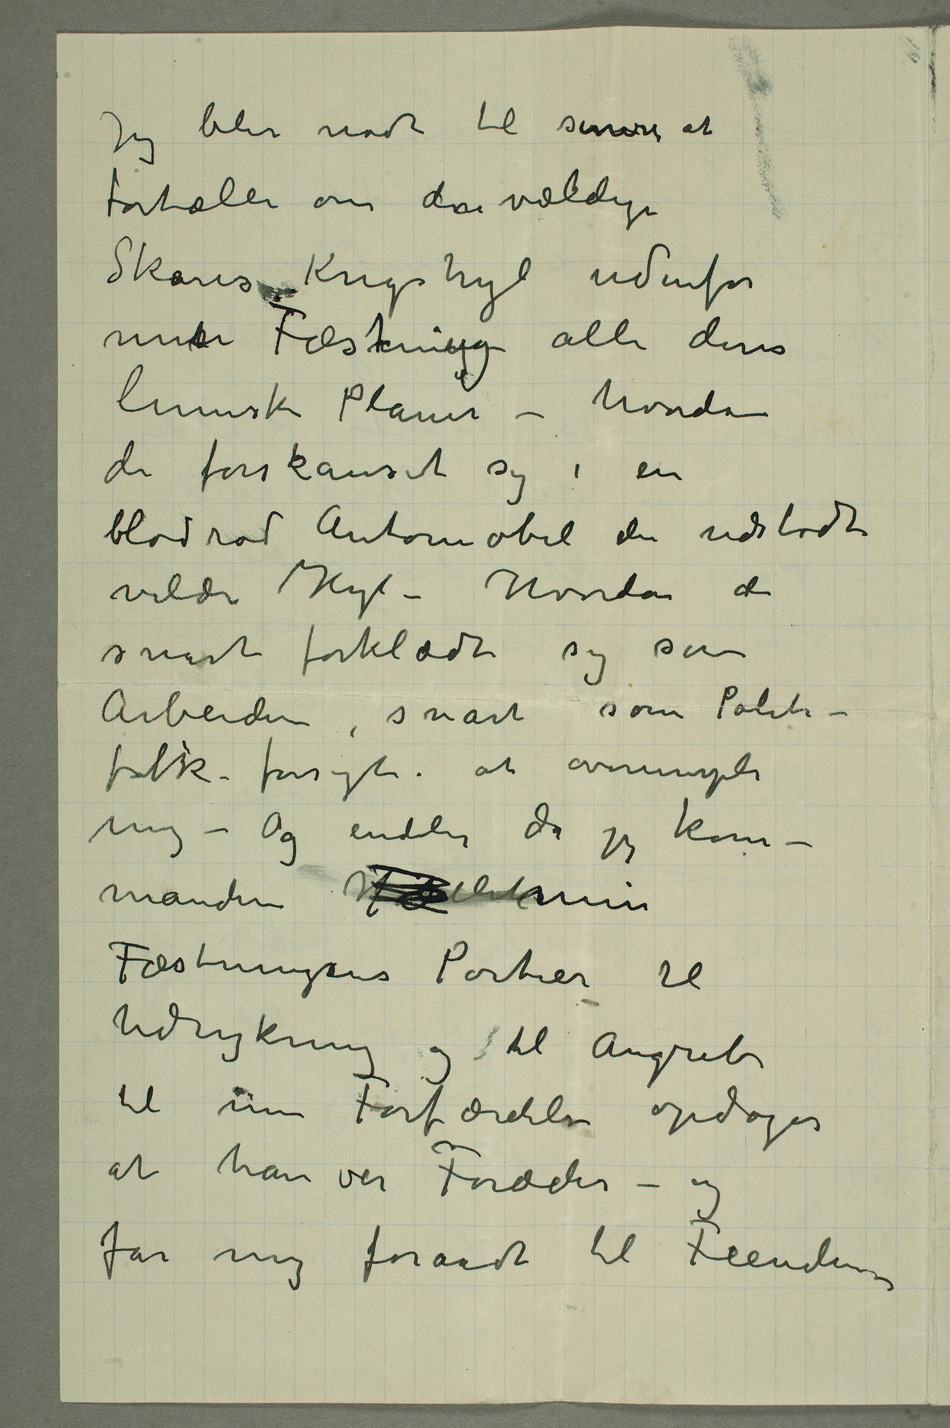 Jeg blir nødt til senere at
fortælle om den vældige
Skares Krigshyl udenfor
min Fæstning alle deres
lumske Planer – hvordan
de forskanset sig i en
blodrød Automobil de udstødte
vilde Hyl – Hvordan de
snart forklædt sig som
Arbeidere, snart som Politi-
folk – forsøgte at overrumple
mig – Og endelig da jeg kom-
manderer min
Fæstningens Portier til
Udrykning og til Angreb
til min Forfærdelse opdager
at han var Forræder – og
får mig forraadt til Fienderne